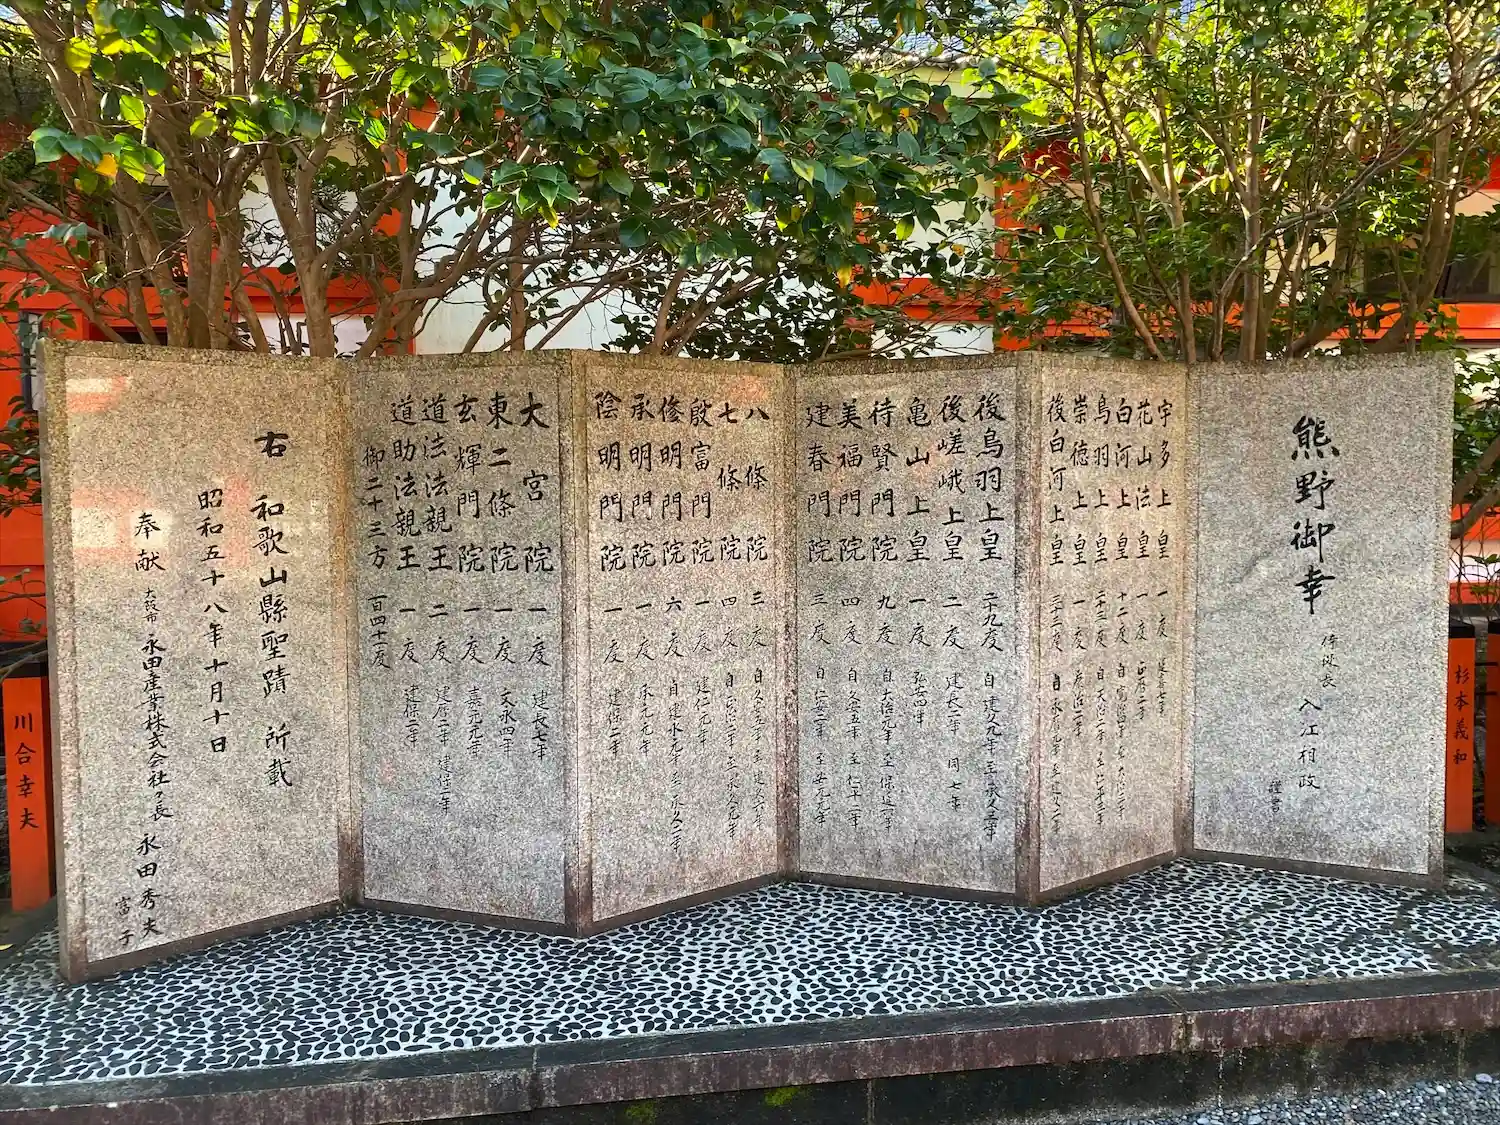 熊野御幸
侍従長 入江相政 謹書
宇多上皇 一度 延喜七年
花山法皇 一度 正暦二年
白河上皇 十二度 自寛治四年 至大治三年
鳥羽上皇 二十三度 自天治二年 至仁平三年
崇徳上皇 一度 康治二年
後白河上皇 三十三度 自永暦元年 至建久二年
後鳥羽上皇 二十九度 自建久九年 至承久三年
後嵯峨上皇 二度 建長二年 同七年
亀山上皇 一度 弘安四年
待賢門院 九度 自大治元年 至保延二年
美福門院 四度 自久安五年 至仁平二年
建春門院 三度 自仁安二年 至安元元年
八條院 三度
七條院 四度
殷富門院 一度 建仁元年
修明門院 六度
承明門院 一度 承元元年
陰明門院 一度 建保二年
大宮院 一度 建長七年
東二條院 一度 文永四年
玄輝門院 一度 嘉元元年
道法法親王 二度 建暦二年 建保二年
道助法親王 一度 建保二年
御二十三方 百四十一度
右 和歌山縣聖蹟 所載
昭和五十八年十月十日
奉献 大阪市 永田産業株式会社々長 永田秀夫
富子
川合幸夫
杉本義和